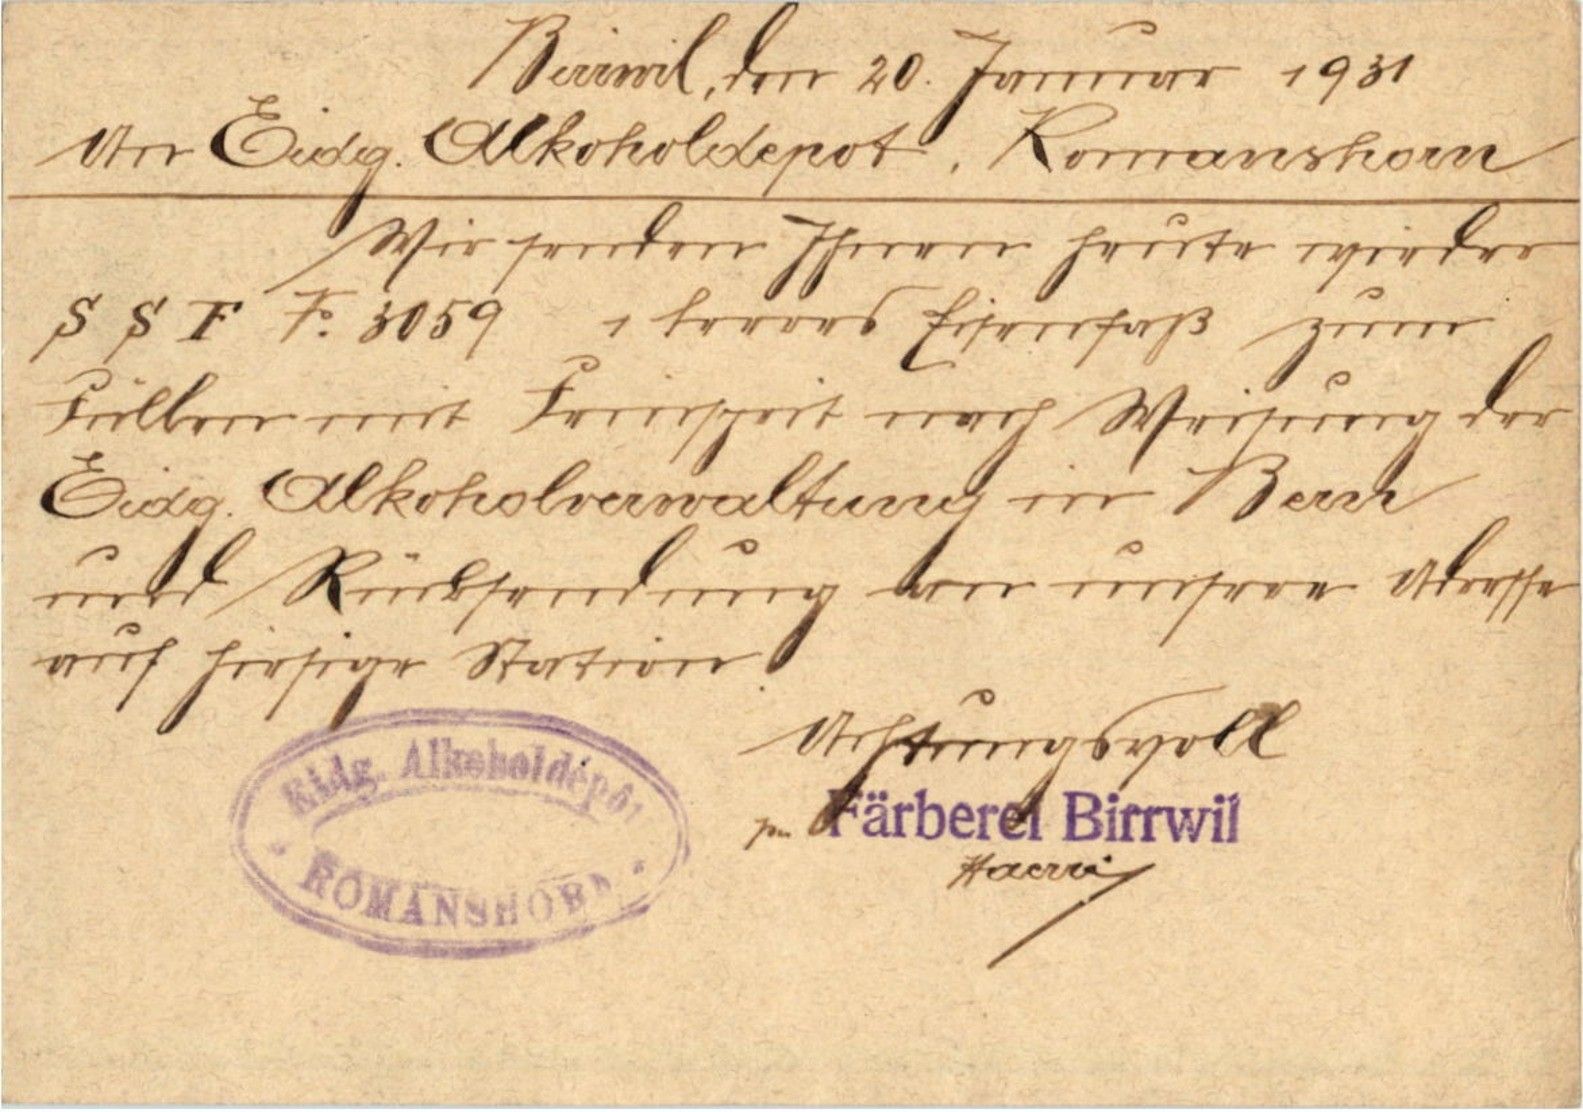 Birrwil, den 20. Januar 1931
An Eidg. Alkoholdepot, Romanshorn
Wir senden Ihnen heute wieder
S S F F. 3059 1 leeres Eisenfaß zum
Füllen mit Feinsprit nach Weisung der
Eidg. Alkoholverwaltung in Bern
und Rücksendung an unsere Adresse
auf hiesige Station.
Achtungsvoll
Eidg. Alkoholdépôt
ROMANSHORN
p. Färberei Birrwil
Haerri